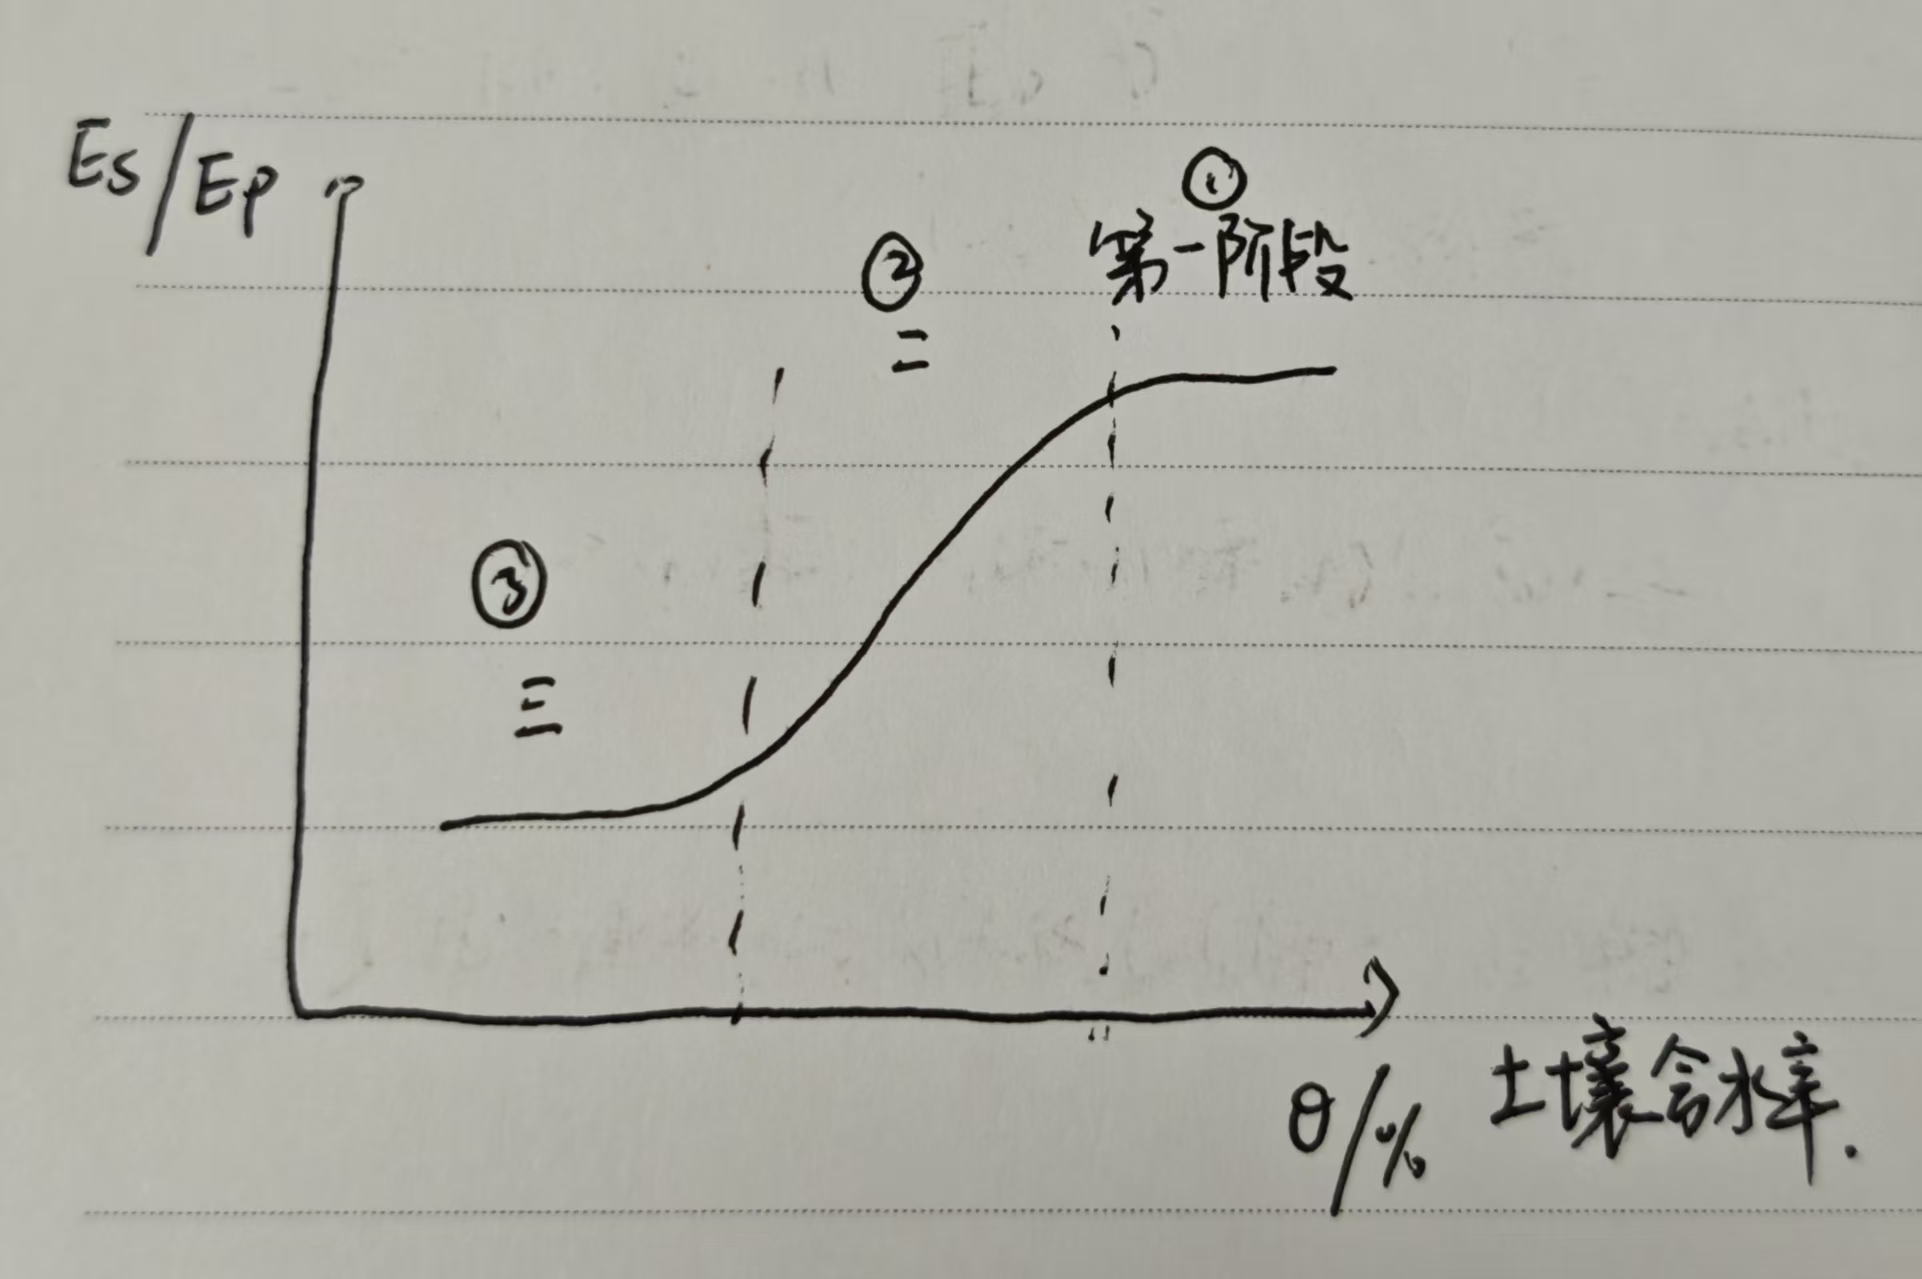 Es/Ep
①
第一阶段
②
二
③
三
θ/% 土壤含水率.